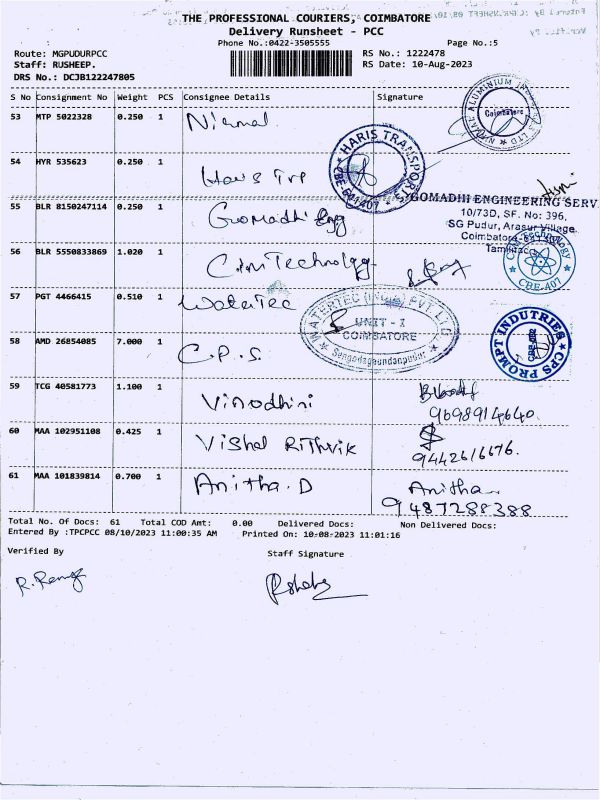 THE PROFESSIONAL COURIERS, COIMBATORE
Delivery Runsheet - PCC
Phone No.:0422-3505555
Page No.:5
Route: MGPUDURPCC
RS No.: 1222478
Staff: RUSHEEP.
RS Date: 10-Aug-2023
DRS No.: DCJB122247805
S No Consignment No Weight PCS Consignee Details Signature
53 MTP 5022328 0.250 1 Nirmal
Coimbatore
54 HYR 535623 0.250 1 Haris Trp
HARIS TRANSPORTS
CBE-641407
55 BLR 8150247114 0.250 1 Gomadhi Eng
GOMADHI ENGINEERING SERV
10/73D, SF. No: 396,
SG Pudur, Arasur Village,
56 BLR 5550833869 1.020 1 CimTechnology
CBE-407
57 PGT 4466415 0.510 1 WaterTec
WATERTEC (India) PVT. LTD
UNIT - I
COIMBATORE
58 AMD 26854085 7.000 1 C.P.S.
CPS PROMPT INDUTRIES
59 TCG 40581773 1.100 1 Vinodhini
9698914640
60 MAA 102951108 0.425 1 Vishal Rithvik
9442616676.
61 MAA 101839814 0.700 1 Anitha.D Anitha
9487288388
Total No. Of Docs: 61 Total COD Amt: 0.00 Delivered Docs: Non Delivered Docs:
Entered By :TPCPCC 08/10/2023 11:00:35 AM Printed On: 10-08-2023 11:01:16
Verified By Staff Signature